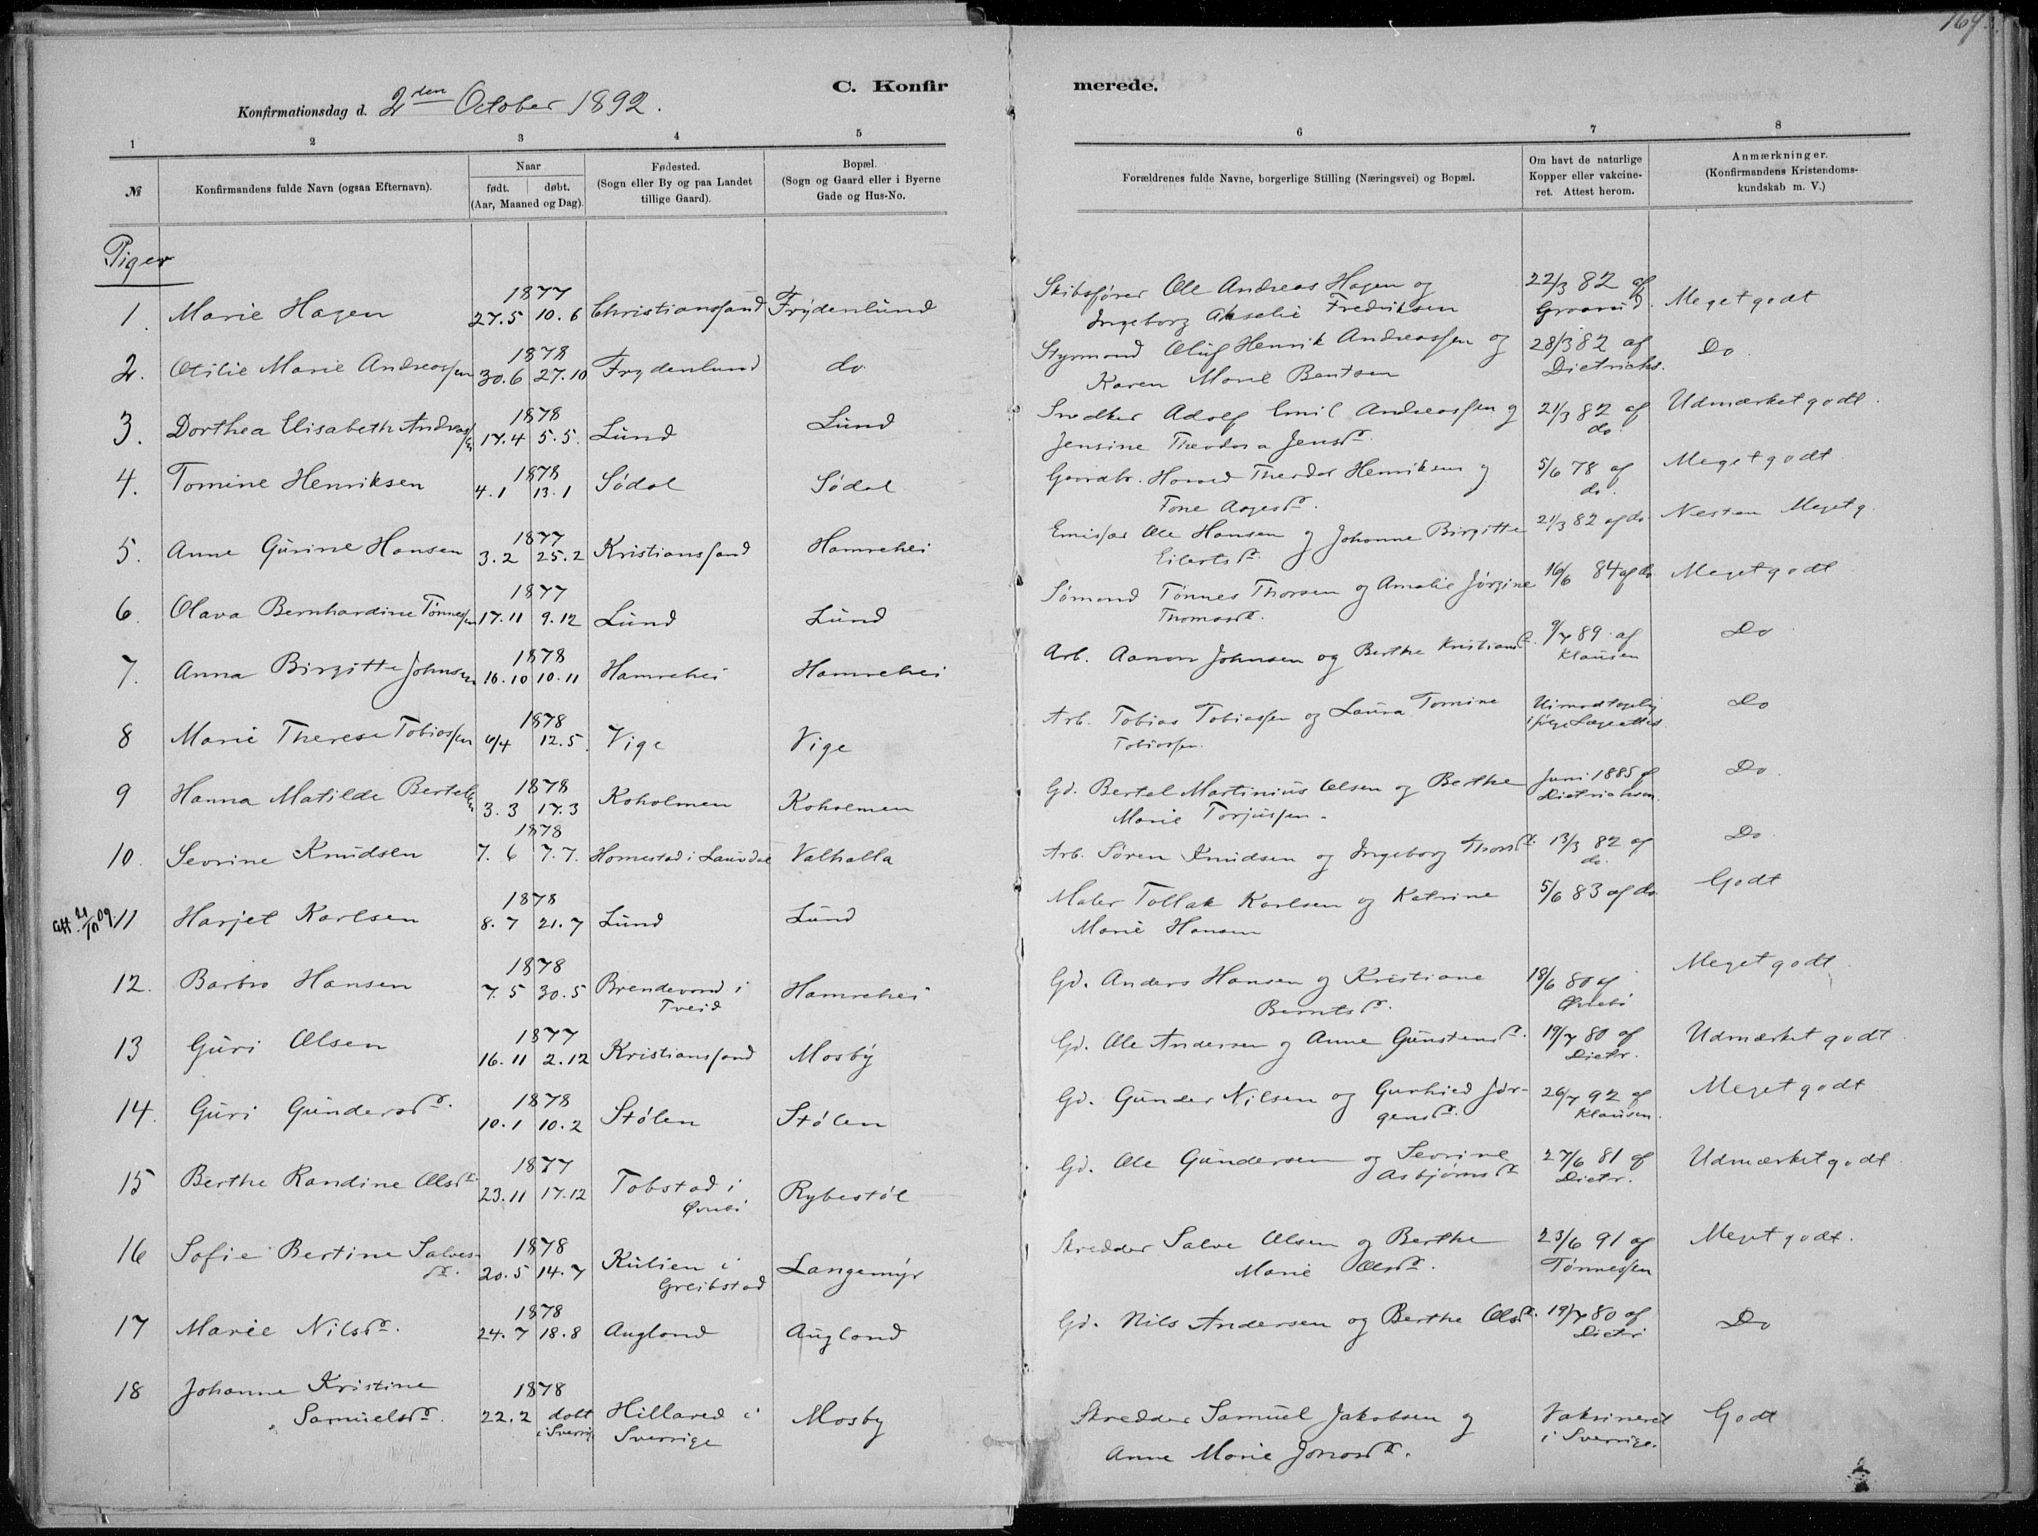 164
C. Konfirmerede.
Konfirmationsdag d. 2den October 1892.
1 2 3 4 5 6 7 8
№ Konfirmandens fulde Navn (ogsaa Efternavn). Naar født. døbt. (Aar, Maaned og Dag). Fødested. (Sogn eller By og paa Landet tillige Gaard). Bopæl. (Sogn og Gaard eller i Byerne Gade og Hus-No. Forældrenes fulde Navne, borgerlige Stilling (Næringsvei) og Bopæl. Om havt de naturlige Kopper eller vakcineret. Attest herom. Anmærkninger. (Konfirmandens Kristendomskundskab m. V.)
Piger
1. Marie Hagen 1877 27.5 10.6 Christianssand Frydenlund Skibsfører Ole Andreas Hagen og 22/3 82 af Meget godt
Ingeborg Akselie Fredriksen
2. Otilie Marie Andreassen 1878 30.6 27.10 Frydenlund do. Styrmand Oluf Henrik Andreassen og 28/3 82 af Do
Karen Marie Bentsen Dietrichs.
3. Dorthea Elisabeth Andreassen 1878 17.4 5.5. Lund Lund Snedker Adolf Emil Andreassen og 21/3 82 af Udmærket godt.
Jensine Theodora Jensd. do.
4. Tomine Henriksen 1878 4.1 13.1 Sødal Sødal Gaardbr. Theodor Henriksen og 5/6 78 af Meget godt
Tone Aagesd. do.
5. Anne Gurine Hansen 1877 3.2 25.2 Kristianssand Hamrehei Emissær Ole Hansen og Johanne Birgitte 21/3 82 af do Nesten Meget g.
Eilertsd.
6. Olava Bernhardine Tønnessen 1877 17.11 9.12 Lund Lund Sømand Tønnes Thorsen og Amalie Jørgine 16/6 84 af do Meget godt
Thomasd.
7. Anna Birgitte Johnsen 1878 16.10 10.11 Hamrehei Hamrehei Arb. Aanon Johnsen og Berthe Kristiansd. 9/7 89. af Do
Klausen
8 Marie Therese Tobiassen 1878 6/4 12.5. Vige Vige Arb. Tobias Tobiassen og Laura Tomine Uimodtagelig Do
Tobiassen. ifølge Lægeattest.
9 Hanna Matilde Bertelsen 1878 3.3 17.3 Koholmen Koholmen Gd. Bertel Martinius Olsen og Berthe Juni 1885 af Do.
Marie Torjussen. Dietrichsen.
10. Sevrine Knudsen 1878 7.6 7.7. Homestad i Laudal Valhalla Arb. Søren Knudsen og Ingeborg Thorsd. 13/3 82 af Do.
do.
att. 21/10 09. 11 Harjet Karlsen 1878 8.7 21.7 Lund Lund Maler Tollak Karlsen og Katrine 5/6 83 af do Godt
Marie Hansen
12. Barbro Hansen 1878 7.5 30.5 Brendevand i Hamrehei Gd. Anders Hansen og Kristiane 18/6 80 af Meget godt
Tveid Berntsd. Øvrebø
13 Guri Olsen 1877 16.11 2.12 Kristianssand Mosby Gd. Ole Andersen og Anne Gunstensd. 19/7 80 af Udmærket godt
Dietr.
14. Guri Gundersd. 1878 10.1 10.2 Stølen Stølen Gd. Gunder Nilsen og Gurhied Jør- 26/7 92 af Meget godt
gensd. Klausen.
15 Berthe Randine Olsd. 1877 23.11 17.12 Tobstad i Rybestøl Gd. Ole Gundersen og Sevrine 27/6 81 af Udmærket godt
Øvrebø Asbjørnsd. Dietr.
16 Sofie Bertine Salves- 1878 20.5 14.7 Kulien i Langemyr Skredder Salve Olsen og Berthe 23/6 91 af Meget godt.
d. Greibstad Marie Olsd. Tønnessen
17 Marie Nilsd. 1878 24.7 18.8 Augland Augland Gd. Nils Andersen og Berthe Olsd. 19/7 80 af Do
Dietr
18 Johanne Kristine 1878
Samuelsd. 22.2 døbt i Sverrig Hillared i Sverrige Mosby Skredder Samuel Jakobsen og Vaksineret Godt
Anne Marie Jonasd. i Sverrige.